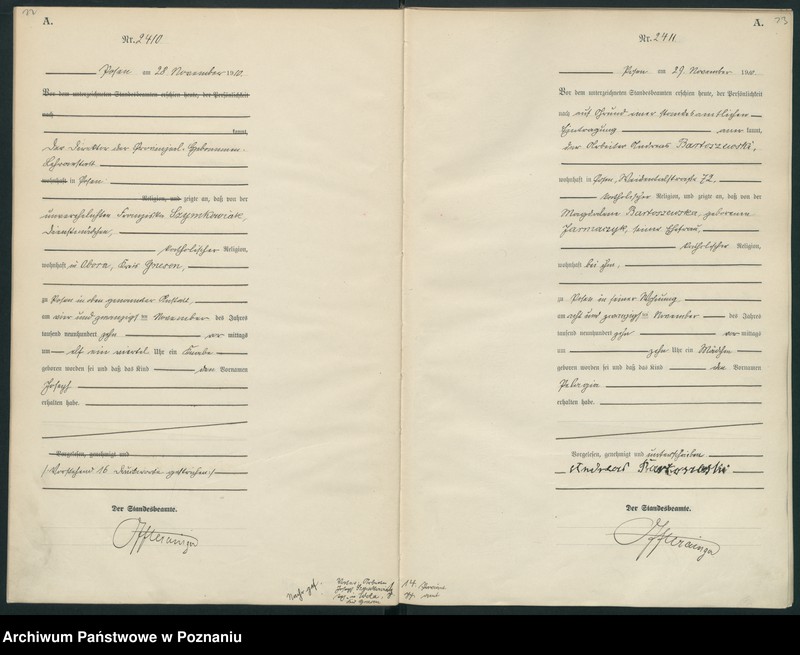 A.
Nr. 2410
Posen am 28. November 1910.
Vor dem unterzeichneten Standesbeamten erschien heute, der Persönlichkeit
nach
kannt,
Der Direktor der Provinzial-Hebammen-
Lehranstalt
wohnhaft in Posen
Religion, und zeigte an, daß von der
unverehelichten Franziska Szymkowiak,
Dienstmädchen,
katholischer Religion,
wohnhaft in Obora, Kreis Gnesen,
zu Posen in oben genannter Anstalt,
am vier und zwanzigsten November des Jahres
tausend neunhundert zehn vor mittags
um elf ein viertel Uhr ein Knabe
geboren worden sei und daß das Kind den Vornamen
Joseph
erhalten habe.
Vorgelesen, genehmigt und
(Vorstehend 16 Druckworte gestrichen.)
Der Standesbeamte.
A.
73
Nr. 2411
Posen am 29. November 1910.
Vor dem unterzeichneten Standesbeamten erschien heute, der Persönlichkeit
nach auf Grund einer standesamtlichen
Eintragung aner kannt,
der Arbeiter Andreas Bartoszewski,
wohnhaft in Posen, 72,
katholischer Religion, und zeigte an, daß von der
Magdalena Bartoszewska, geborenen
Jarmarzyk, seiner Ehefrau,
katholischer Religion,
wohnhaft bei ihm,
zu Posen in seiner Wohnung,
am acht und zwanzigsten November des Jahres
tausend neunhundert zehn vor mittags
um zehn Uhr ein Mädchen
geboren worden sei und daß das Kind die Vornamen
Pelagia
erhalten habe.
Vorgelesen, genehmigt und unterschrieben
Andreas Bartoszewski
Der Standesbeamte.
Archiwum Państwowe w Poznaniu